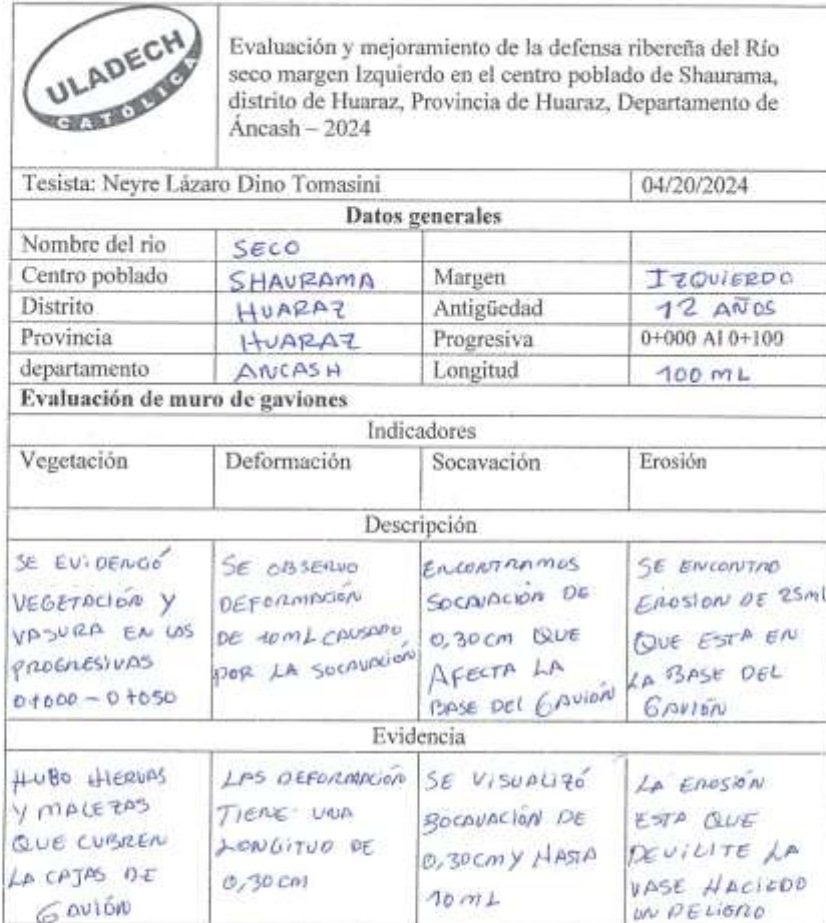 ULADECH
CATOLICA
Evaluación y mejoramiento de la defensa ribereña del Río
seco margen Izquierdo en el centro poblado de Shaurama,
distrito de Huaraz, Provincia de Huaraz, Departamento de
Áncash – 2024
Tesista: Neyre Lázaro Dino Tomasini 04/20/2024
Datos generales
Nombre del rio SECO
Centro poblado SHAURAMA Margen IZQUIERDO
Distrito HUARAZ Antigüedad 12 AÑOS
Provincia HUARAZ Progresiva 0+000 Al 0+100
departamento ANCASH Longitud 100 ML
Evaluación de muro de gaviones
Indicadores
Vegetación Deformación Socavación Erosión
Descripción
SE EVIDENCIÓ
VEGETACIÓN Y
VASURA EN LOS
PROGRESIVAS
0+000 - 0+050
SE OBSERVO
DEFORMACIÓN
DE 10ML CAUSADO
POR LA SOCAVACIÓN
ENCONTRAMOS
SOCAVACIÓN DE
0,30CM QUE
AFECTA LA
BASE DEL GAVIÓN
SE ENCONTRO
EROSION DE 25ML
QUE ESTA EN
LA BASE DEL
GAVIÓN
Evidencia
HUBO HIERVAS
Y MALEZAS
QUE CUBREN
LA CAJAS DE
GAVIÓN
LAS DEFORMACIÓN
TIENE UNA
LONGITUD DE
0,30 CM
SE VISUALIZÓ
SOCAVACIÓN DE
0,30CM Y HASTA
10 ML
LA EROSIÓN
ESTA QUE
DEVILITE LA
VASE HACIEDO
UN PELIGRO